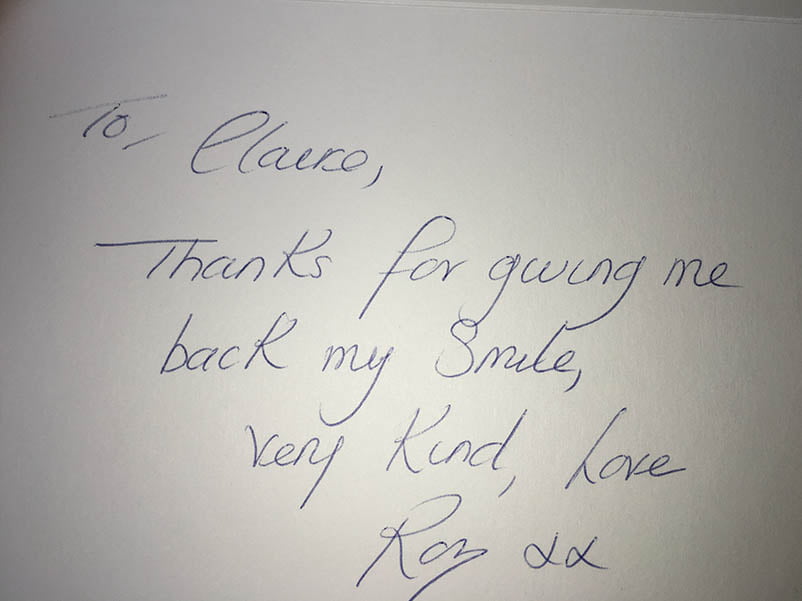 To, Claire,
Thanks for giving me
back my Smile,
Very Kind, Love
Roz xx